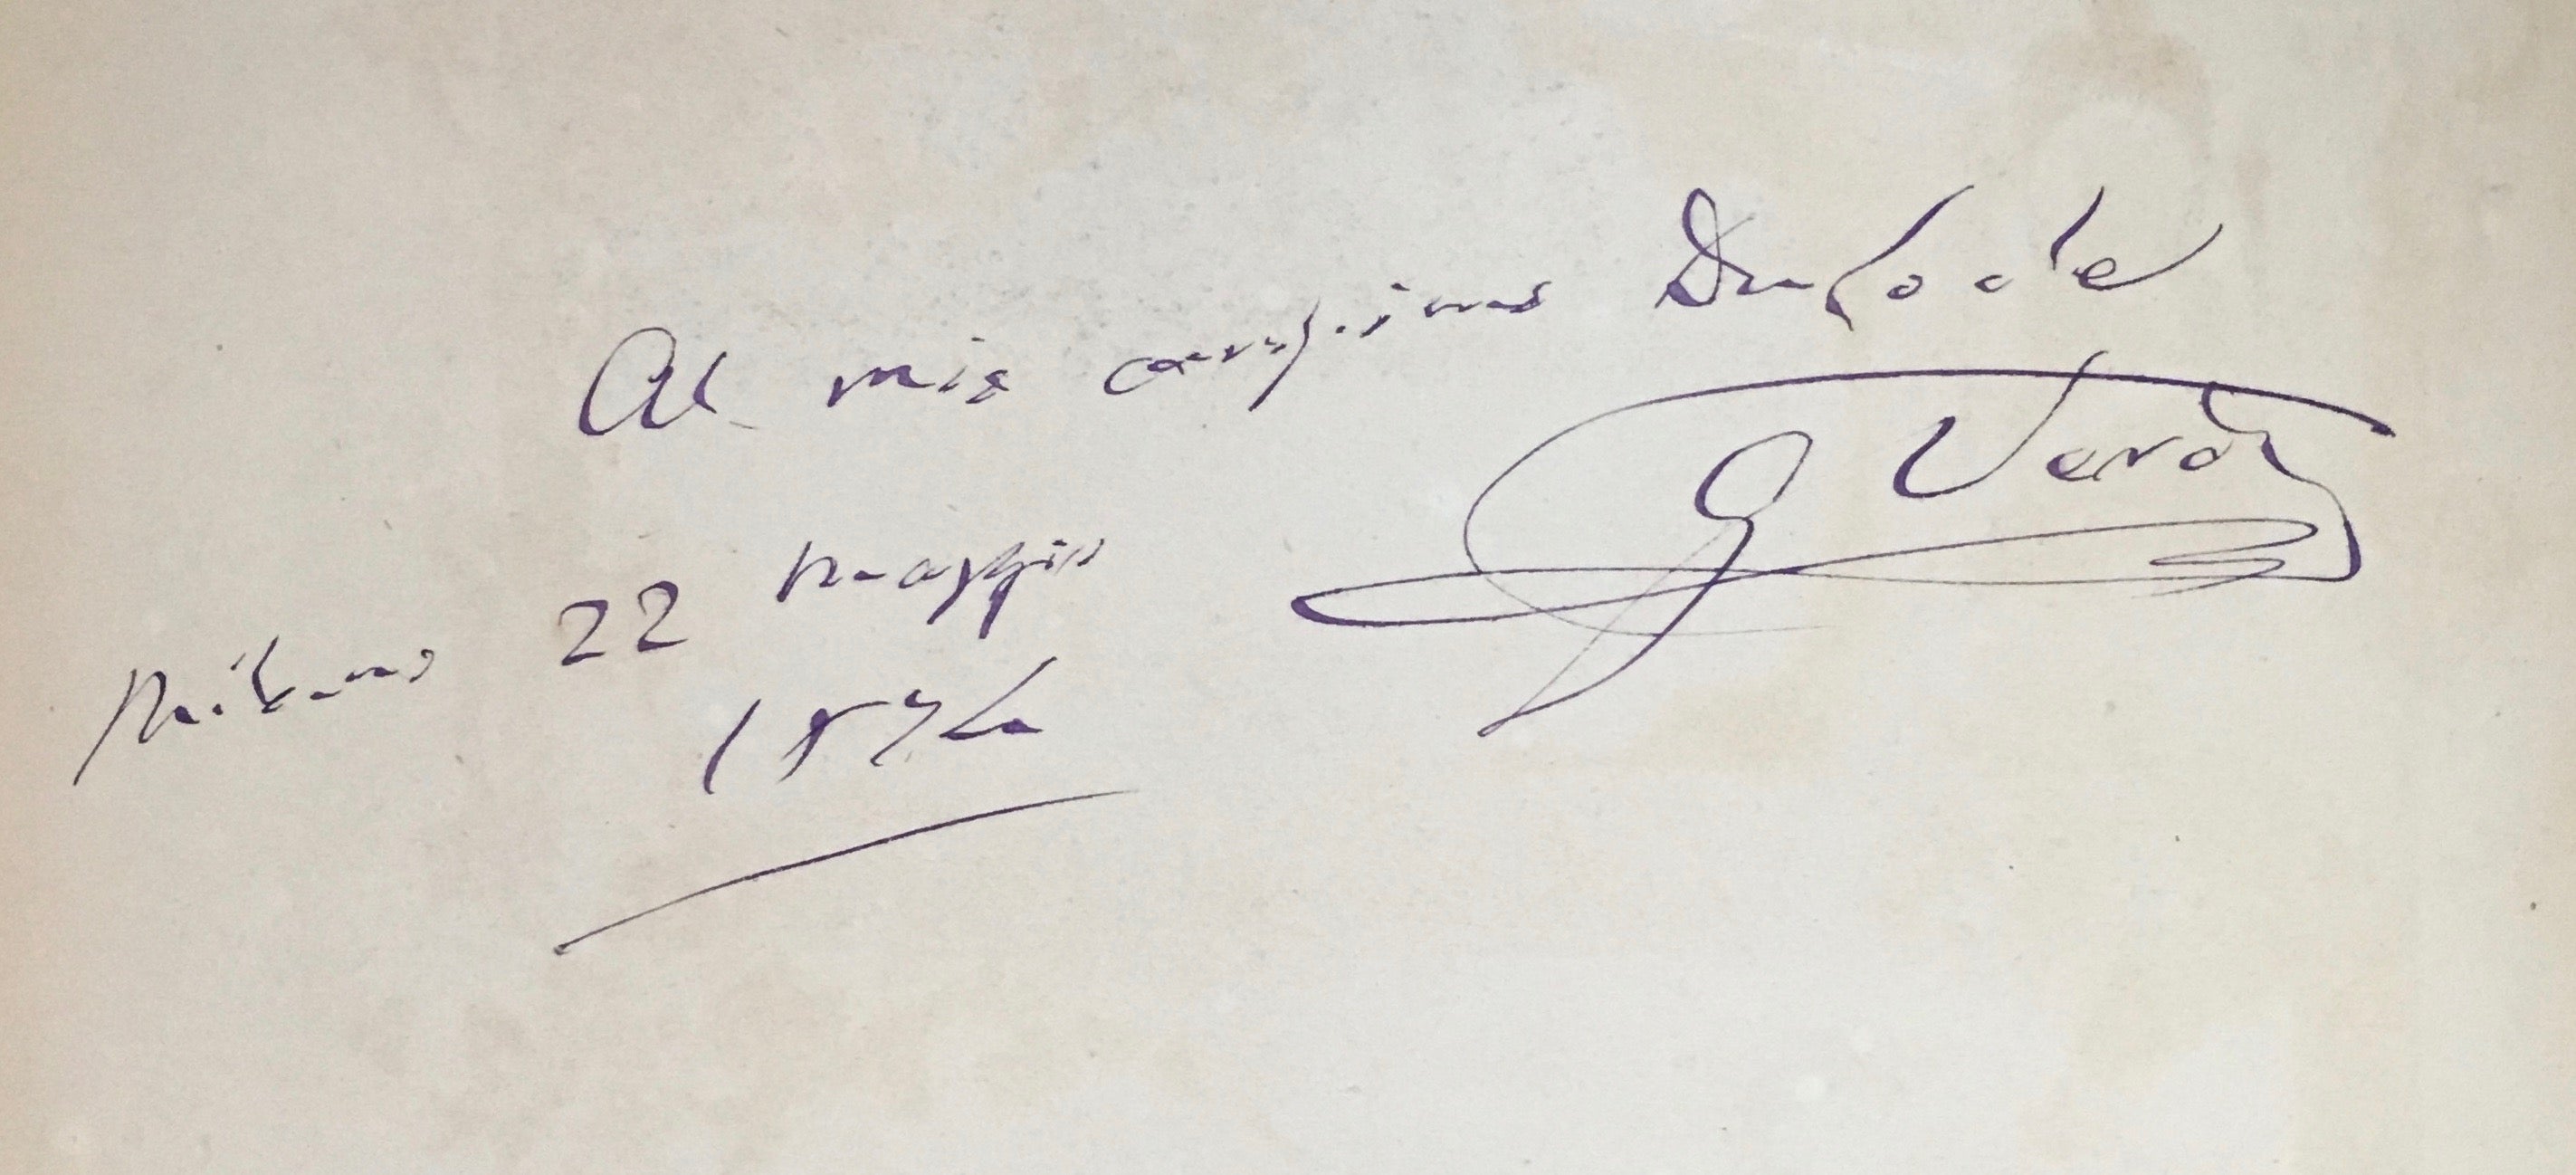 Al mio carissimo Du Locle
G Verdi
Milano 22 Maggio
1874